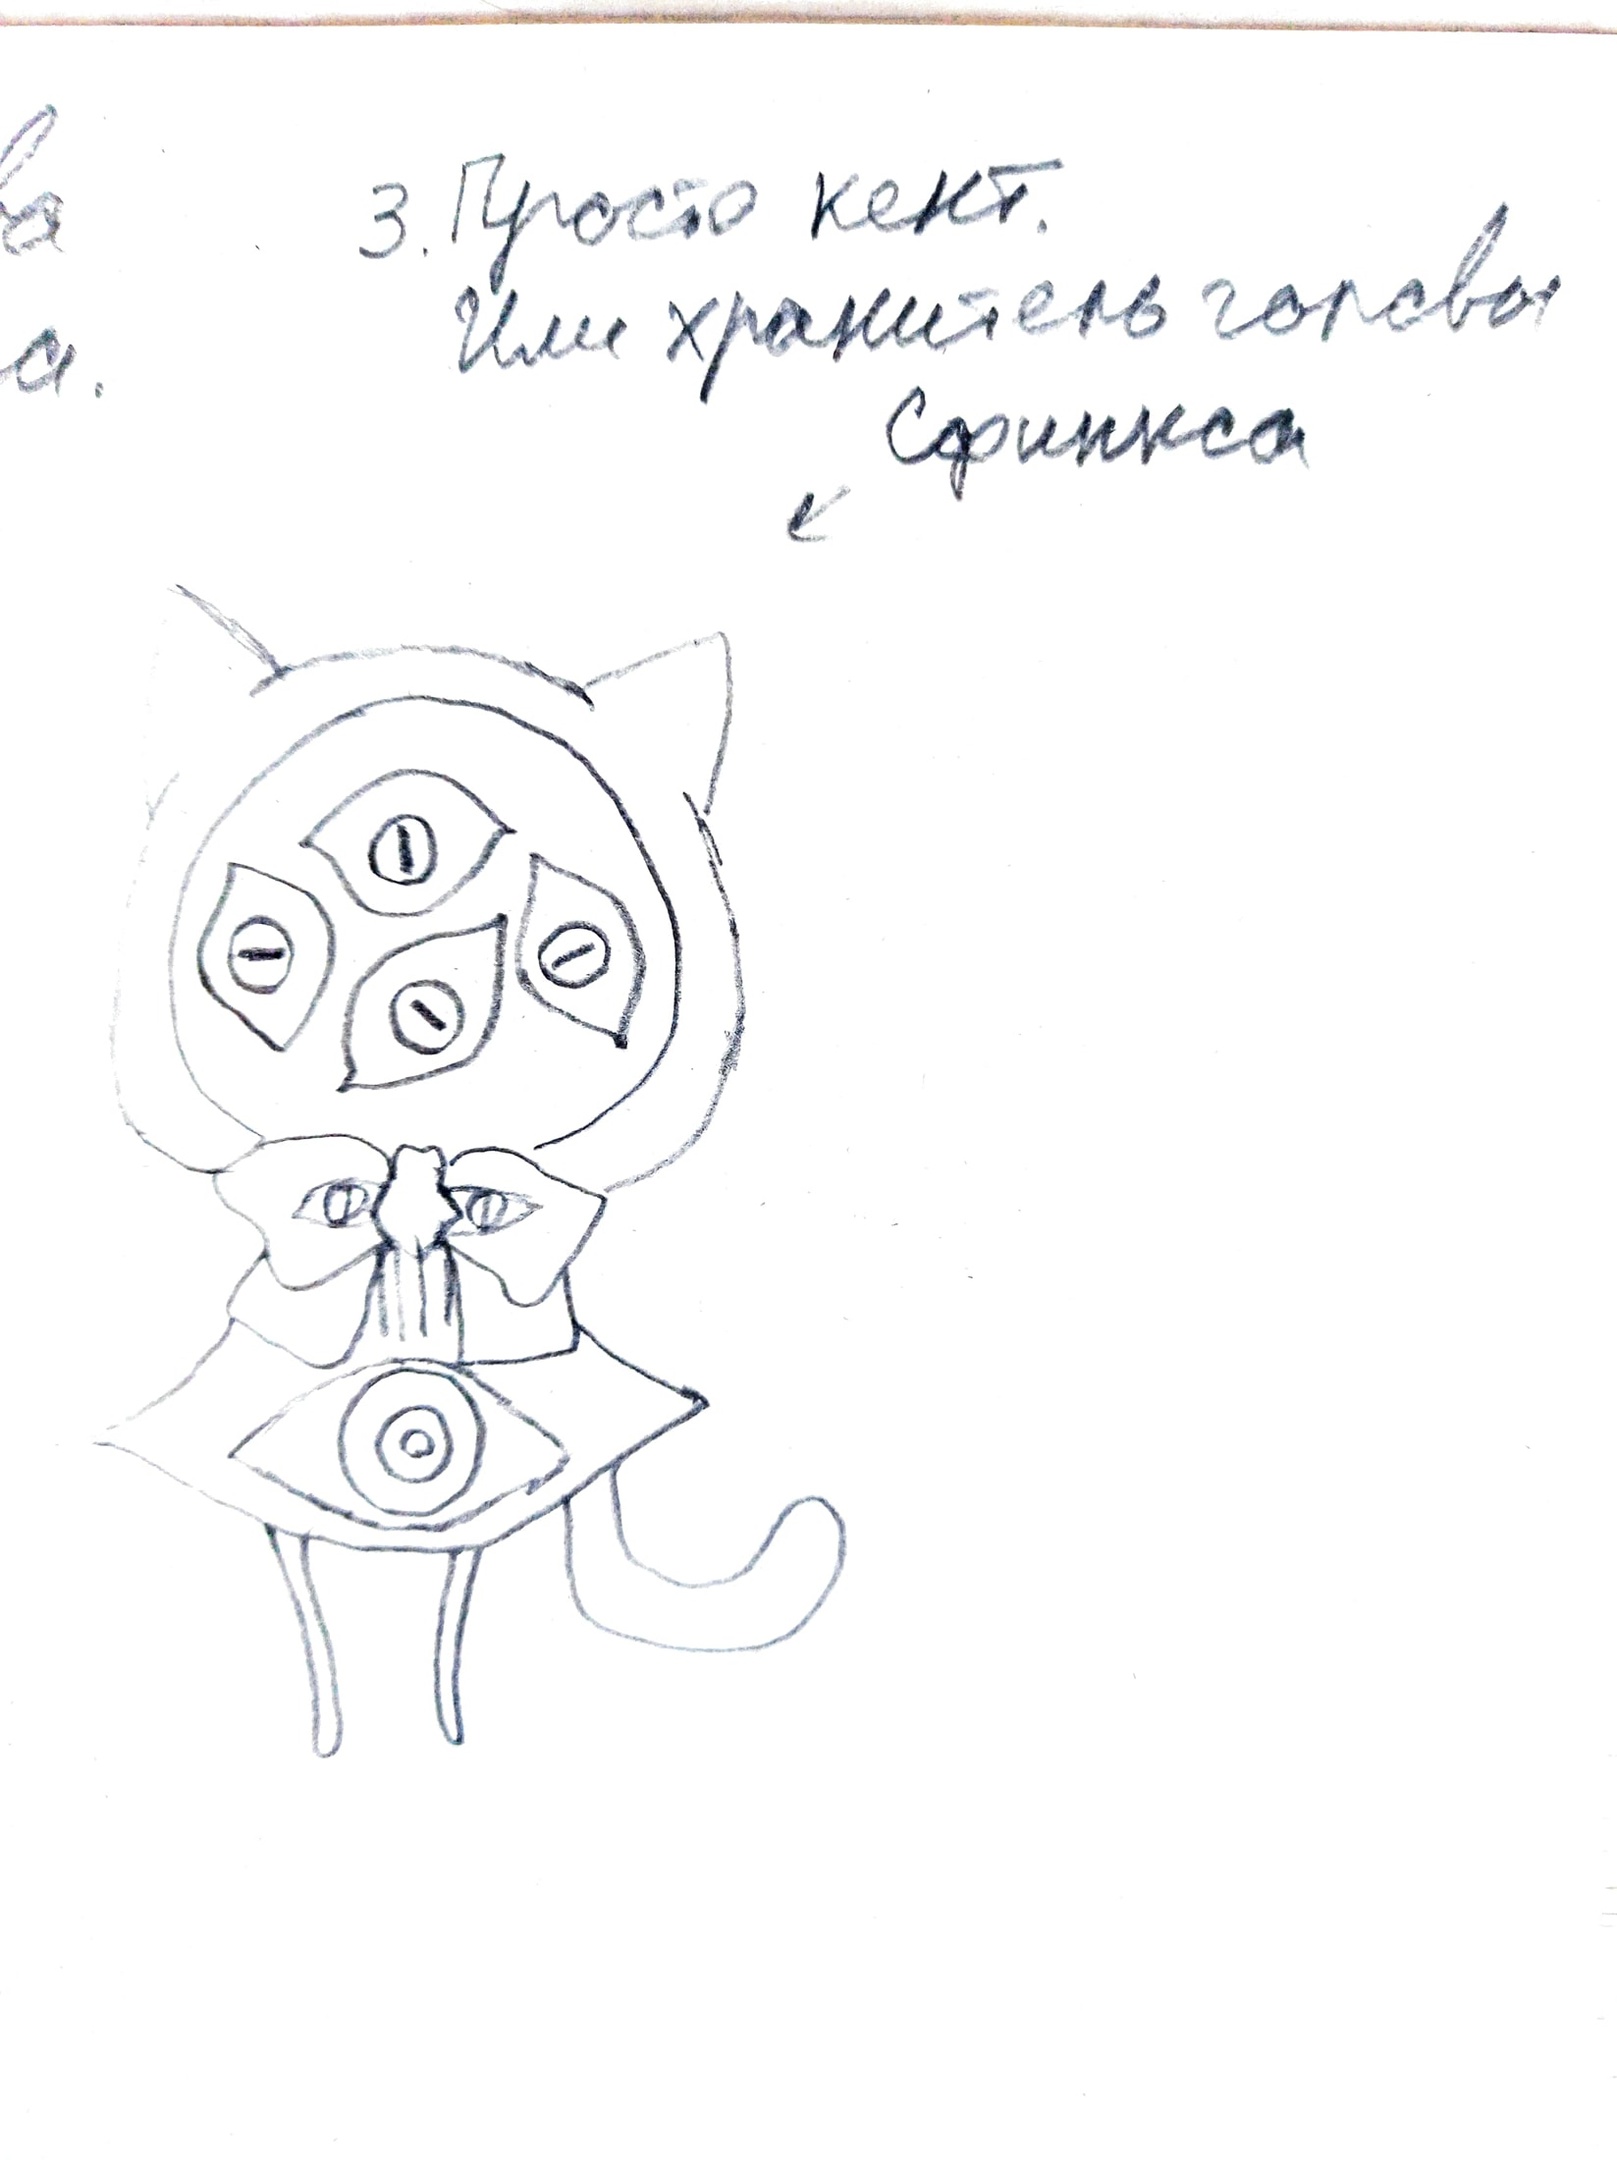 3. Просто кент.
Или хранитель головы
Сфинкса